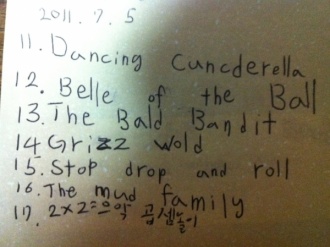 2011. 7. 5
11. Dancing Cuncderella
12. Belle of the Ball
13. The Bald Bandit
14 Grizz wold
15. Stop drop and roll
16. The mud family
17. 2×2=으악 곱셈놀이